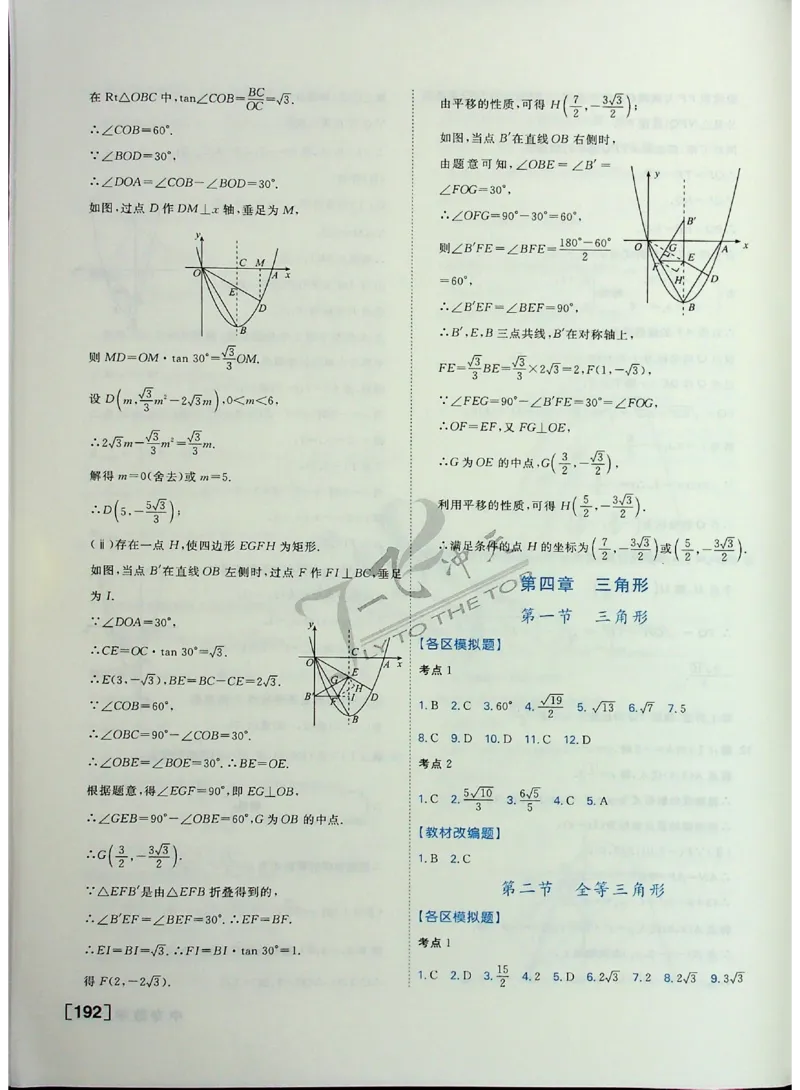 在 Rt△OBC 中,tan∠COB=BC/OC=√3.
∴∠COB=60°.
∵∠BOD=30°,
∴∠DOA=∠COB-∠BOD=30°.
如图,过点 D 作 DM⊥x 轴,垂足为 M,
y
C M
O A x
E
D
B
则 MD=OM·tan 30°=√3/3 OM.
设 D(m,√3/3 m²-2√3m),0<m<6,
∴2√3m-√3/3 m²=√3/3 m.
解得 m=0(舍去)或 m=5.
∴D(5,-5√3/3);
(ⅱ)存在一点 H,使四边形 EGFH 为矩形.
如图,当点 B′在直线 OB 左侧时,过点 F 作 FI⊥BC,垂足
为 I.
∵∠DOA=30°,
∴CE=OC·tan 30°=√3.
∴E(3,-√3),BE=BC-CE=2√3.
∵∠COB=60°,
∴∠OBC=90°-∠COB=30°.
∴∠OBE=∠BOE=30°.∴BE=OE.
根据题意,得∠EGF=90°,即 EG⊥OB,
∴∠GEB=90°-∠OBE=60°,G 为 OB 的中点.
∴G(3/2,-3√3/2).
∵△EFB′是由△EFB 折叠得到的,
∴∠B′EF=∠BEF=30°.∴EF=BF.
∴EI=BI=√3.∴FI=BI·tan 30°=1.
得 F(2,-2√3).
y
C
O A x
E
G H
B′ F I D
B
[192]
由平移的性质,可得 H(7/2,-3√3/2);
如图,当点 B′在直线 OB 右侧时,
由题意可知,∠OBE=∠B′=
∠FOG=30°,
∴∠OFG=90°-30°=60°,
则∠B′FE=∠BFE=(180°-60°)/2
=60°,
∴∠B′EF=∠BEF=90°,
∴B′,E,B 三点共线,B′在对称轴上,
FE=√3/3 BE=√3/3×2√3=2,F(1,-√3),
∵∠FEG=90°-∠B′FE=30°=∠FOG,
∴OF=EF,又 FG⊥OE,
∴G 为 OE 的中点,G(3/2,-√3/2),
利用平移的性质,可得 H(5/2,-3√3/2).
∴满足条件的点 H 的坐标为(7/2,-3√3/2)或(5/2,-3√3/2).
y
B′
O G A x
F E
H D
B
第四章 三角形
第一节 三角形
【各区模拟题】
考点 1
1.B 2.C 3.60° 4.√19/2 5.√13 6.√7 7.5
8.C 9.D 10.D 11.C 12.D
考点 2
1.C 2.5√10/3 3.6√5/5 4.C 5.A
【教材改编题】
1.B 2.C
第二节 全等三角形
【各区模拟题】
考点 1
1.C 2.D 3.15/2 4.2 5.D 6.2√3 7.2 8.2√3 9.3√3
一飞冲天
FLY TO THE TOP